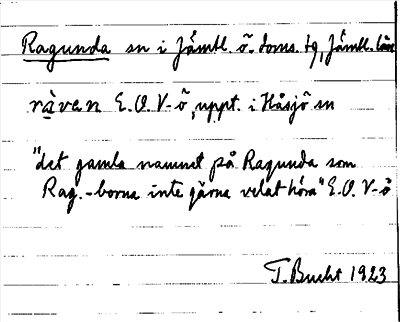 Ragunda sn i Jämtl. ö. doms. tg, Jämtl. län
räven E.O. V-ö, uppt. i Håsjö sn
"det gamla namnet på Ragunda som
Rag.-borna inte gärna velat höra" E.O. V-ö
T. Bucht 1923